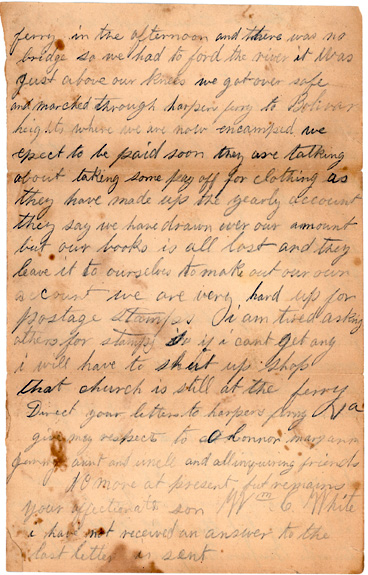 ferry in the afternoon and there was no
bridge so we had to ford the river it was
just above our knees we got over safe
and marched through harpers fery to Bolivar
heights where we are now encamped we
epect to be paid soon they are talking
about taking some pay off for clothing as
they have made up the yearly account
they say we have drawn over our amount
but our books is all lost and they
leave it to ourselves to make out our own
account we are very hard up for
postage stamps I am tired asking
others for stamps so if i cant get any
i will have to shut up shop
that church is still at the ferry
Direct your letters to harpers ferry Va
give my respect to O Connor maryann
jenny aunt and uncll and all inquiring friends
No more at present but remains
your affectionate son Wm C White
i have not received an answer to the
last letter i sent